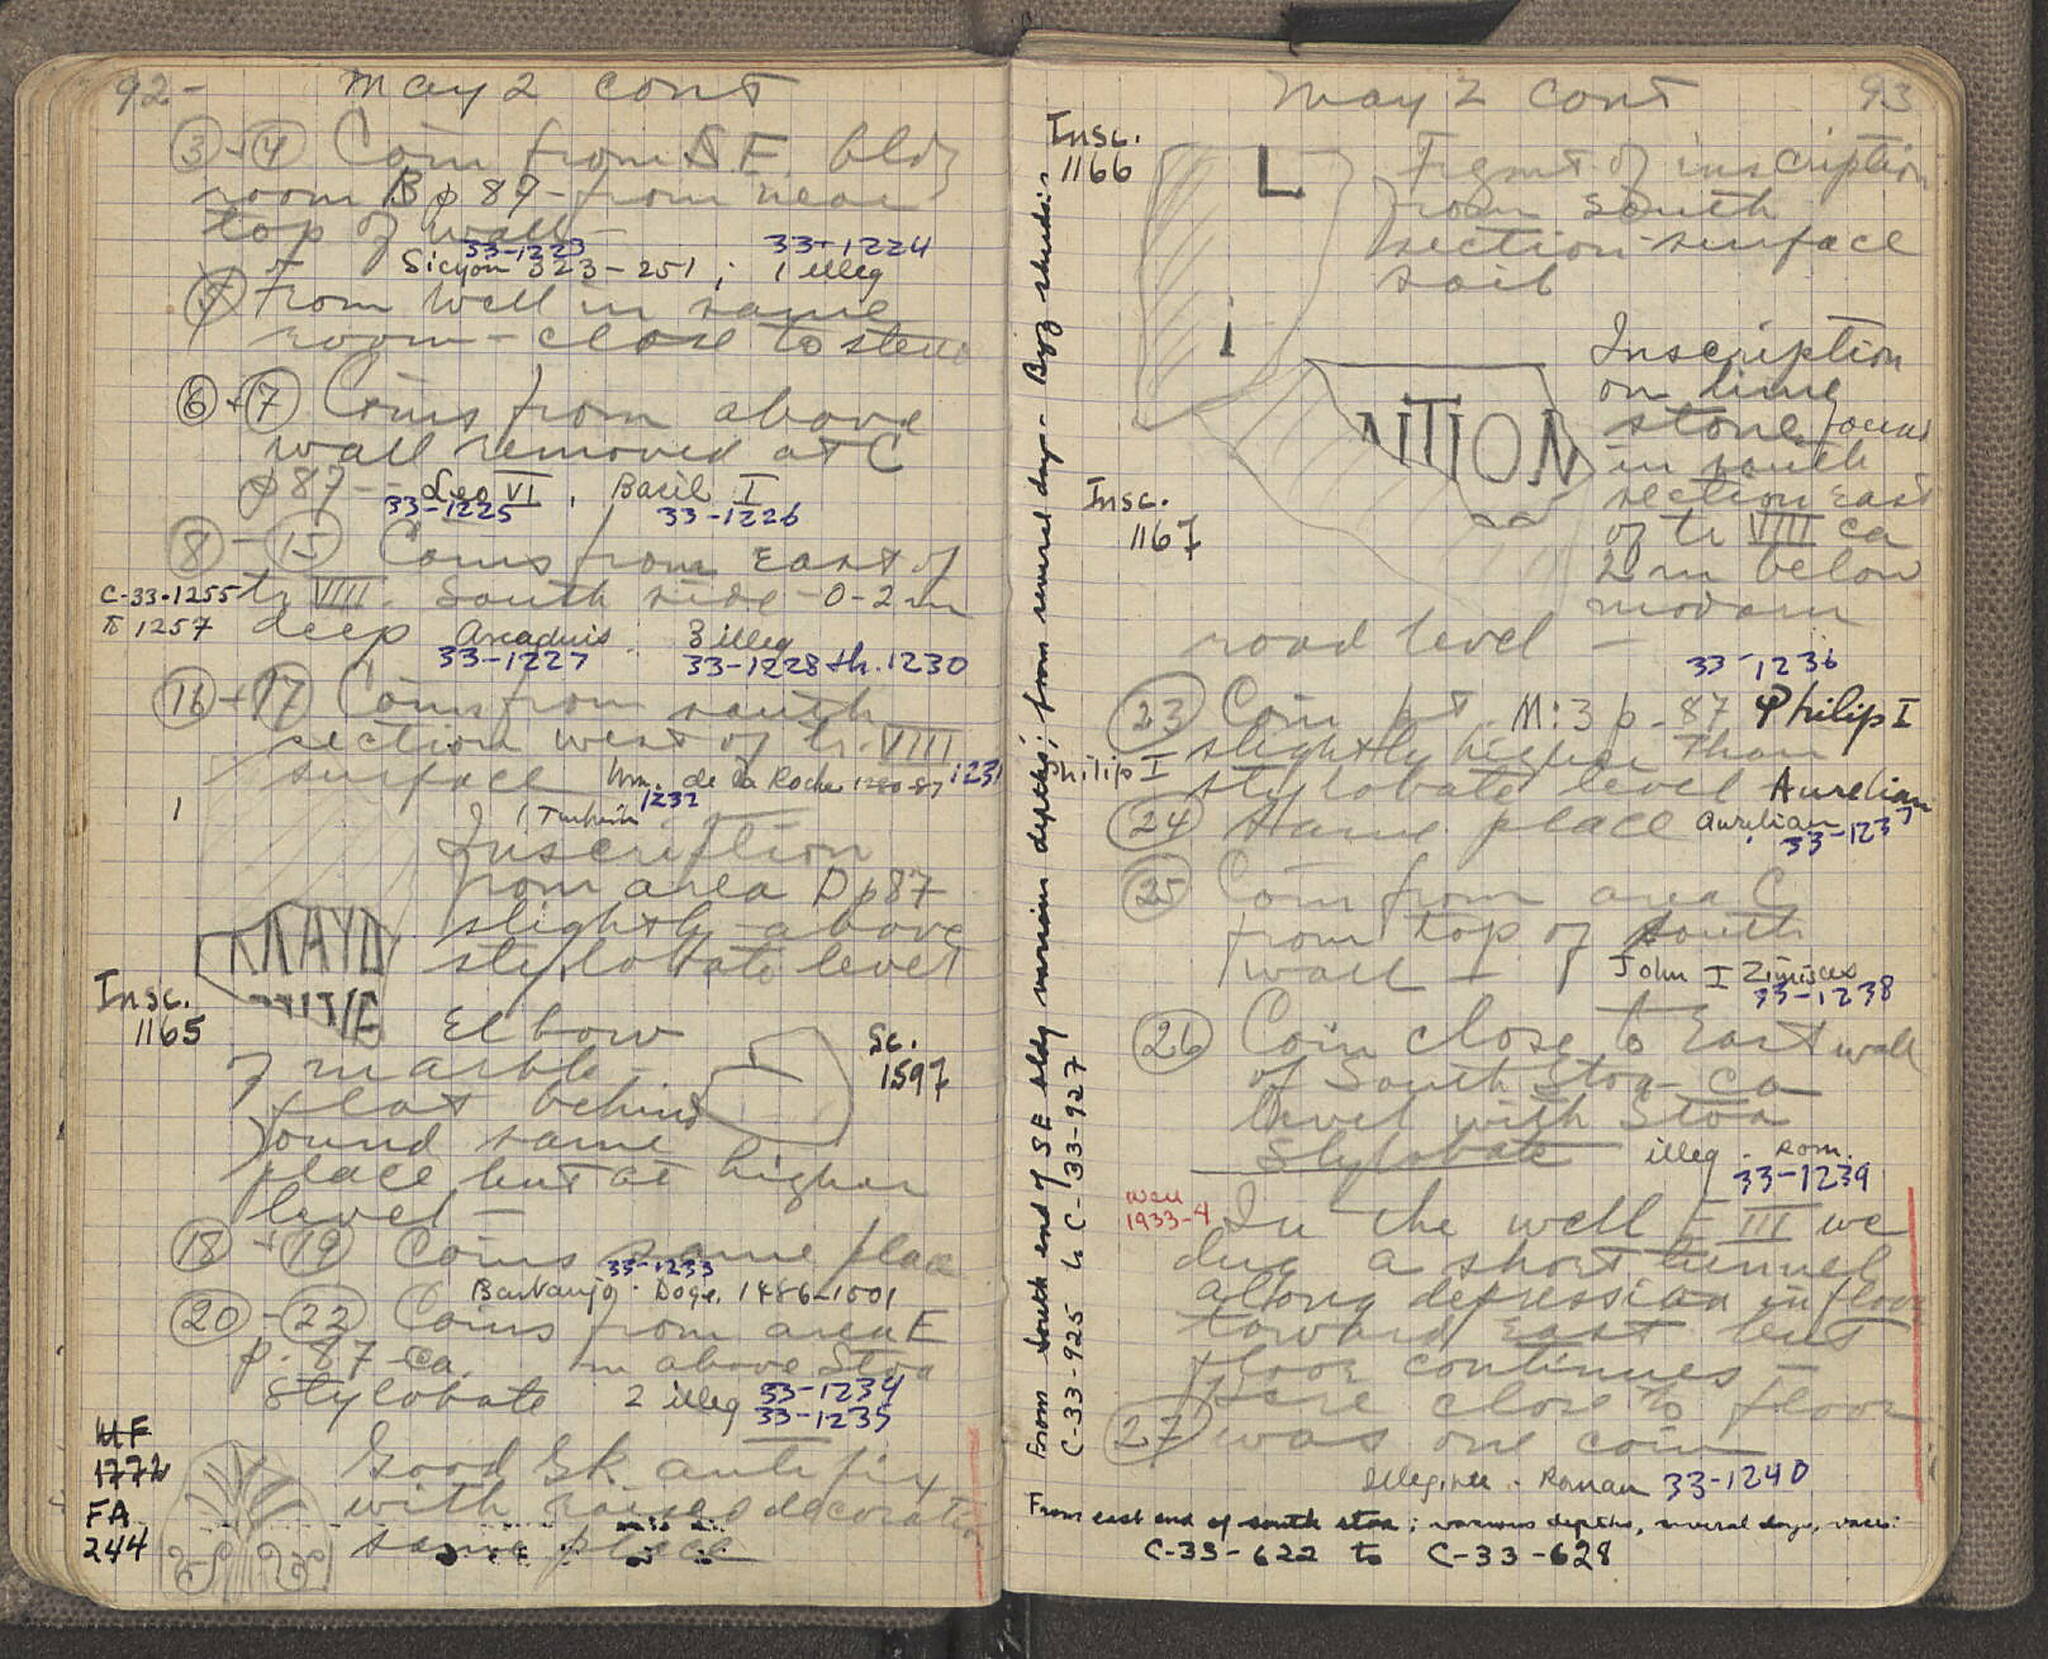 92-
May 2 cont
3 + 4 Coin from S.E. bldg
room B p 87 - from near
top of wall -
33-1223 33-1224
Sicyon 323-251 ; 1 illeg
5 From well in same
room - close to
6 + 7 Coins from above
wall removed at C
p 87 -- Leo VI , Basil I
33-1225 33-1226
8 - 15 Coins from East of
C-33-1255 tr VIIII. South side - 0-2 m
1257 deep Arcadius : 3 illeg
33-1227 33-1228 th. 1230
16 + 17 Coins from south
section west of tr. VIIII
surface Wm. de la Roche 1280-87 1231
1 Turkish 1232
Inscription
from area D p 87
slightly above
stylobate level
Insc.
1165
Elbow
of marble -
flat behind
found same
place but at higher
level -
Sc.
1597
18 + 19 Coins same place
33-1233
Barbarigo. Doge. 1486-1501
20 - 22 Coins from area E
p. 87 ca. m above Stoa
stylobate 2 illeg 33-1234
33-1235
MF
1772
FA
244
Good Gk antefix
with raised decoration
same place
From south end of SE bldg various depths; from several days - Byz sherds:
C-33-925 to C-33-927
May 2 cont
93
Insc.
1166
L
Fgmt of inscription
from south
section - surface
soil
Insc.
1167
ΝΤΙΟΝ
Inscription
on lime
stone found
in south
section East
of tr VIIII ca
2 m below
modern
road level -
33-1236
23 Coin at M:3 p. 87 Philip I
slightly higher than
Philip I
stylobate level Aurelian
24 Same place Aurelian
33-1237
25 Coin from area C
from top of south
wall - John I Zimisces
33-1238
26 Coin close to East wall
of South Stoa ca
level with Stoa
Stylobate illeg. Rom.
33-1239
Well
1933-4
In the well - III we
dug a short tunnel
along depression in floor
toward East but
floor continues -
Here close to floor
27 was one coin
Illegible. Roman 33-1240
From east end of south stoa; various depths, several days, vases:
C-33-622 to C-33-628